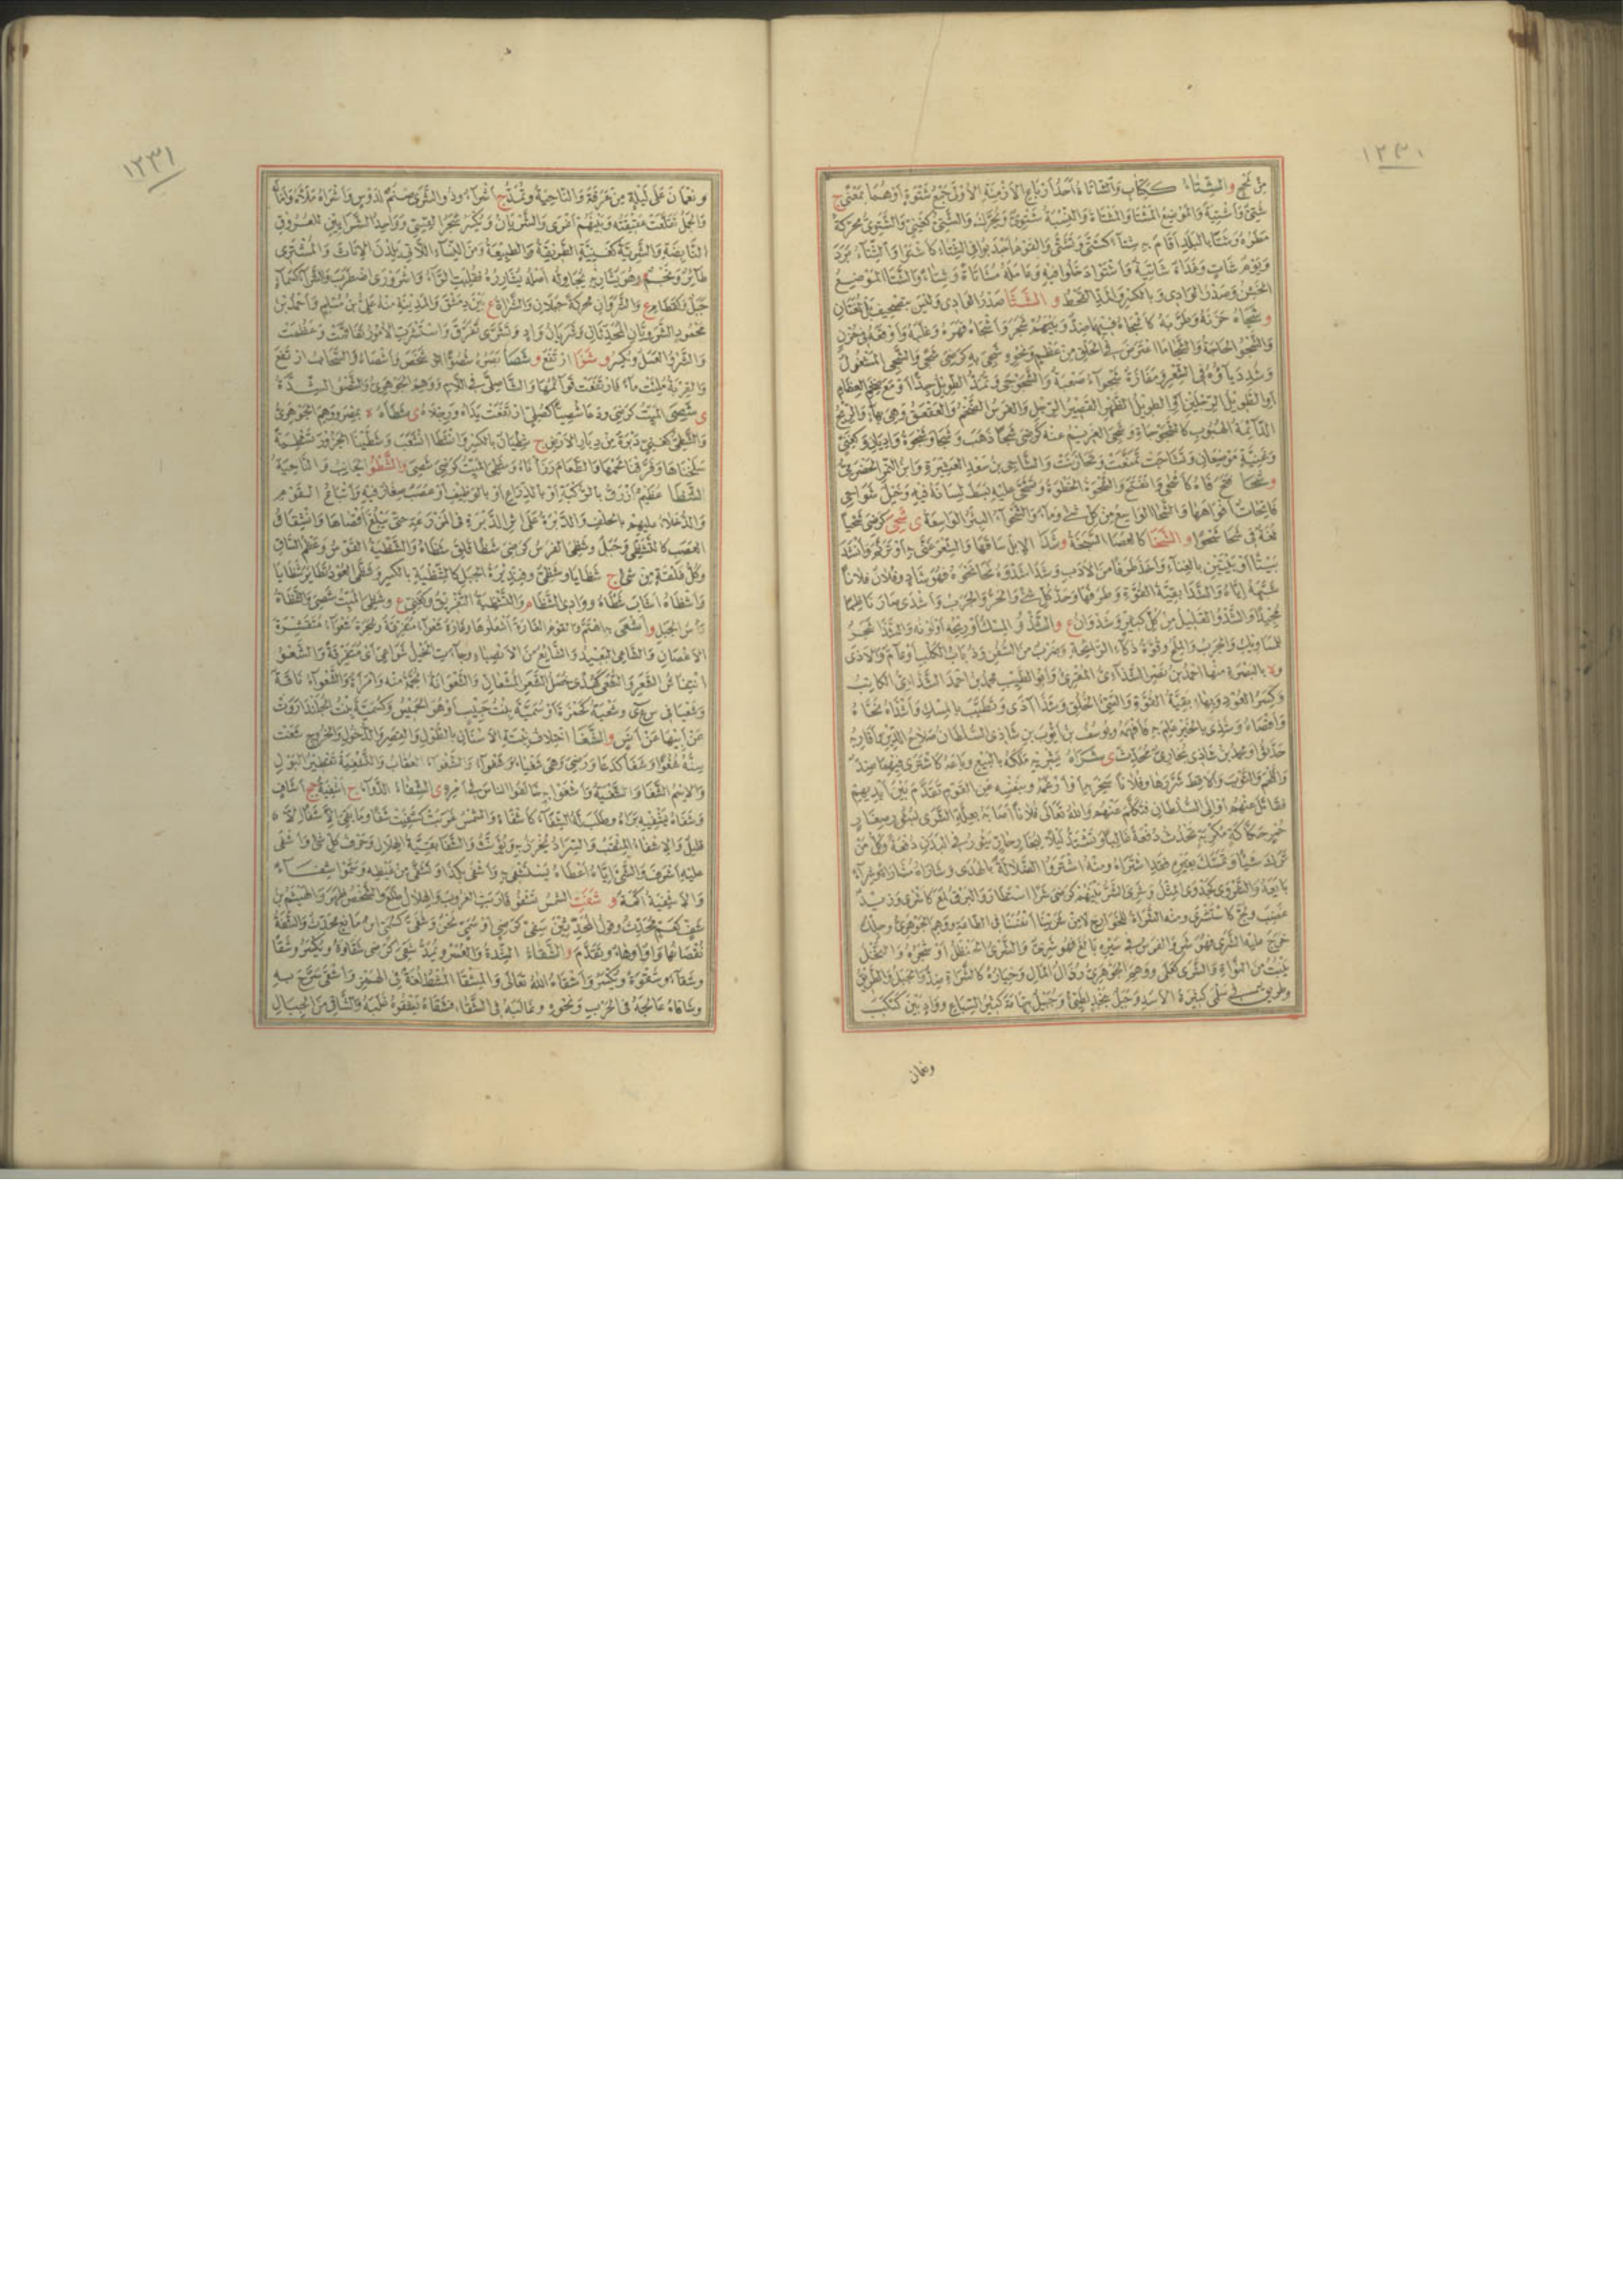 ١٢٣٠
من نحى والشتاء ككتاب والشاتاة أحد أرباع الأزمنة الأولى جمع شتوة أو هما بمعنى ج
شتى وأشتية والموضع المشتا والمشتاة والنسبة شتوى ويحرك والشتى كغنى والشتوى محركة
مطره وشتا بالبلد أقام به شتاء كشتى وتشتى والقوم أجدبوا فى الشتاء كأشتوا والشتاء برد
ويوم شات وغداة شاتية وأشتوا دخلوا فيه وعامله مشاتاة وشتاء والشتا الموضع
الخشن وصدر الوادى وبالكسر والمد القحط و الشثا صدر الوادى وليس بتصحيف بل لغتان
و شجاه حزنه وطربه كأشجاه فيهما ضد وبينهم شجر وأشجاه قهره وغلبه وأوقعه فى حزن
والشجو الحاجة والشجا ما اعترض فى الحلق من عظم ونحوه شجى به كرضى شجى والشجى المشغول
وشدد ياؤه فى الشعر ومفازة شجواء صعبة والشجوجى ويمد الطويل جدا أو مع ضخم العظام
أو الطويل الرجلين أو الطويل الظهر القصير الرجل والفرس الضخم والعقعق وهى بهاء والريح
الدائمة الهبوب كالشجوجاة وشجى الغريم عنه كرضى شجا ذهب وشجا وشجوة واديان وكغنى
وغنية موضعان وتشاجت تمنعت وتحازنت والشاجى بن سعد العشيرة وابن النمر الحضرمى
و شحا فتح فاه كأشحى وانفتح والشحوة الخطوة وتشحى عليه بسط لسانه فيه وخيل شواحى
فاتحات أفواهها والشحا الواسع من كل شئ وماء والشحواء البئر الواسعة ى شحى كرضى شحيا
لغة فى شحا شحوا و الشخا كالعصا السبخة و شدا الإبل ساقها والشعر غنى به أو ترنم وأنشد
بيتا أو بيتين بالغناء وأخذ طرفا من الأدب وشدا شدوه نحا نحوه فهو شاد وفلان فلانا
شبهه إياه والشدا بقية القوة وطرفها وحد كل شئ والحر والجرب وأشدى صار ناظما
مجيدا والشدو القليل من كل كثير وشدوان ع و الشذو المسك أو ريحه أو لونه والشذا شجر
للمساويك والجرب والملح وقوة ذكاء الرائحة وضرب من السفن وذباب الكلب أو عام والأذى
وة بالبصرة منها أحمد بن نصر الشذائى المقرئ وأبو الطيب محمد بن أحمد الشذائى الكاتب
وكسر العود وبهاء بقية القوة والشئ الخلق وشذا آذى وتطيب بالمسك وأشذاه نحاه
وأقصاه وشذى بالخبر علم به فأفهمه ويوسف بن أيوب بن شاذى السلطان صلاح الدين وأقاربه
حدثوا ومحمد بن شاذى بخارى محدث ى شراه يشريه ملكه بالبيع وباعه كاشترى فيهما ضد
واللحم والثوب والأقط شررها وفلانا سخر به أو أرغمه وبنفسه عن القوم تقدم بين أيديهم
فقاتل عنهم أو إلى السلطان فتكلم عنهم والله تعالى فلانا أصابه بعلة الشرى لبثور صغار
حمر حكاكة مكربة تحدث دفعة غالبا وتشتد ليلا لبخار حار يثور فى البدن دفعة وكل من
ترك شيئا وتمسك بغيره فقد اشتراه ومنه اشتروا الضلالة بالهدى وشاراه مشاراة وشراء
بايعه والشروى كجدوى المثل وشرى الشر بينهم كرضى شرا استطار والبرق لمع كأشرى وزيد
غضب ولج كاستشرى ومنه الشراة للخوارج لا من شرينا أنفسنا فى الطاعة ووهم الجوهرى وجلده
خرج عليه الشرى فهو شر والفرس فى سيره بالغ فهو شرى والشرى الحنظل أو شجره والنخل
ينبت من النواة والشرى كعلى ووهم الجوهرى رذال المال وخياره كالشراة ضد والجبل والطريق
وطريق فى سلمى كثيرة الأسد وجبل بنجد لطيئ وجبل بتهامة كثير السباع وواد بين كبكب
ونعمان
١٢٣١
ونعمان على ليلة من عرفة والناحية ويمد ج أشراء وذو الشرى صنم لدوس وأشراه ملأه وأماله
والجمل تفلقت عقيقته وبينهم أغرى والشريان ويكسر شجر القسى وواحد الشرايين للعروق
النابضة والشرية كغنية الطريقة والطبيعة ومن النساء اللاتى يلدن الإناث والمشترى
طائر ونجم م وهو يشاريه يجادله أصله يشارره فقلبت الراء واشرورى اضطرب والشراء كسماء
جبل وكقطام ع والشروان محركة جبلان والشراة ع بين دمشق والمدينة منه على بن مسلم وأحمد بن
محمود الشرويان المحدثان وشريان واد وتشرى تفرق واستشرت الأمور تفاقمت وعظمت
والشرو العسل ويكسر و شصا ارتفع و شصا بصره شصوا شخص وأشصاه والسحاب ارتفع
والقربة ملئت ماء فارتفعت قوائمها والشاصلى فى اللام ووهم الجوهرى والشصو الشدة
ى شصى الميت كرضى ودعا شصيا كصلى ارتفعت يداه ورجلاه ى شطاة ة بمصر ووهم الجوهرى
والشطى كغنى دبرة من دبار الأرض ج شطيان بالكسر وانشطا انشعب وشطينا الجزور تشطية
سلخناها وفرقنا لحمها والطعام رزأناه وشطى الميت كرضى شصى و الشظو الجانب والناحية
الشظا عظيم لازق بالركبة أو بالذراع أو بالوظيف أو عصب صغار فيه وأتباع القوم
والدخلاء عليهم بالحلف والدبرة على إثر الدبرة فى المزرعة حتى يبلغ أقصاها وانشقاق
العصب كالتشظى وجبل وشظى الفرس كرضى شظا فلق شظاه والشظية القوس وعظم الساق
وكل فلقة من شئ ج شظايا وشظى وفنديرة الجبل كالشظية بالكسر وتشظى العود تطاير شظايا
وأشظاه أصاب شظاه ووادى الشظا م والتشظية التفريق وكغنى ع وشظى الميت شصى والشظاة
رأس الجبل و أشعى به اهتم والقوم الغارة أشعلوها وغارة شعواء متفرقة وشجرة شعواء منتشرة
الأغصان والشاعى البعيد والشائع من الأنصباء وجاءت الخيل شواعى أى متفرقة والشعو
انتفاش الشعر والشعى كهدى خصل الشعر المشعان والشعوانة الجمة منه وامرأة والشعواء ناقة
وشعيا فى س ع ى وشعية كحمزة أو سمية بنت حبيب أو هو الخميس وكسمية بنت الجلندا روت
عن أبيها عن أنس و الشغا اختلاف نبتة الأسنان بالطول والقصر والدخول والخروج شغت
سنه شغوا وشغا كدعا ورضى وهى شغياء وشغواء والشغواء العقاب والتشغية تقطير البول
والاسم الشغا والشغية وأشغوا به خالفوا الناس فى أمره ى الشفاء الدواء ج أشفية جج أشاف
وشفاه يشفيه برأه وطلب له الشفاء كأشفاه والشمس غربت كشفيت شفا وما بقى إلا شفا إلا
قليل والإشفاء المثقب والسراد يخرز به ويؤنث والشفا بقية الهلال وحرف كل شئ وأشفى
عليه أشرف والشئ إياه أعطاه يستشفى به واشتفى بكذا وتشفى من غيظه وسموا شفاء
والأشفية أكمة و شفت الشمس تشفو قاربت الغروب والهلال طلع والشخص ظهر والهيثم بن
شفى كسمى محدث وقول المحدثين شفى كرضى أو سمى لحن وشفى كسمى ابن ماتع محدث والشفة
نقصانها واو أو هاء وتقدم و الشقاء الشدة والعسر ويمد شقى كرضى شقاوة ويكسر وشقا
وشقاء وشقوة ويكسر وأشقاه الله تعالى والمشقا المشط لغة فى الهمز وأشقى سرح به
وشاقاه عالجه فى الحرب ونحوه وغالبه فى الشقاء فشقاه يشقوه غلبه والشاقى من الجبال